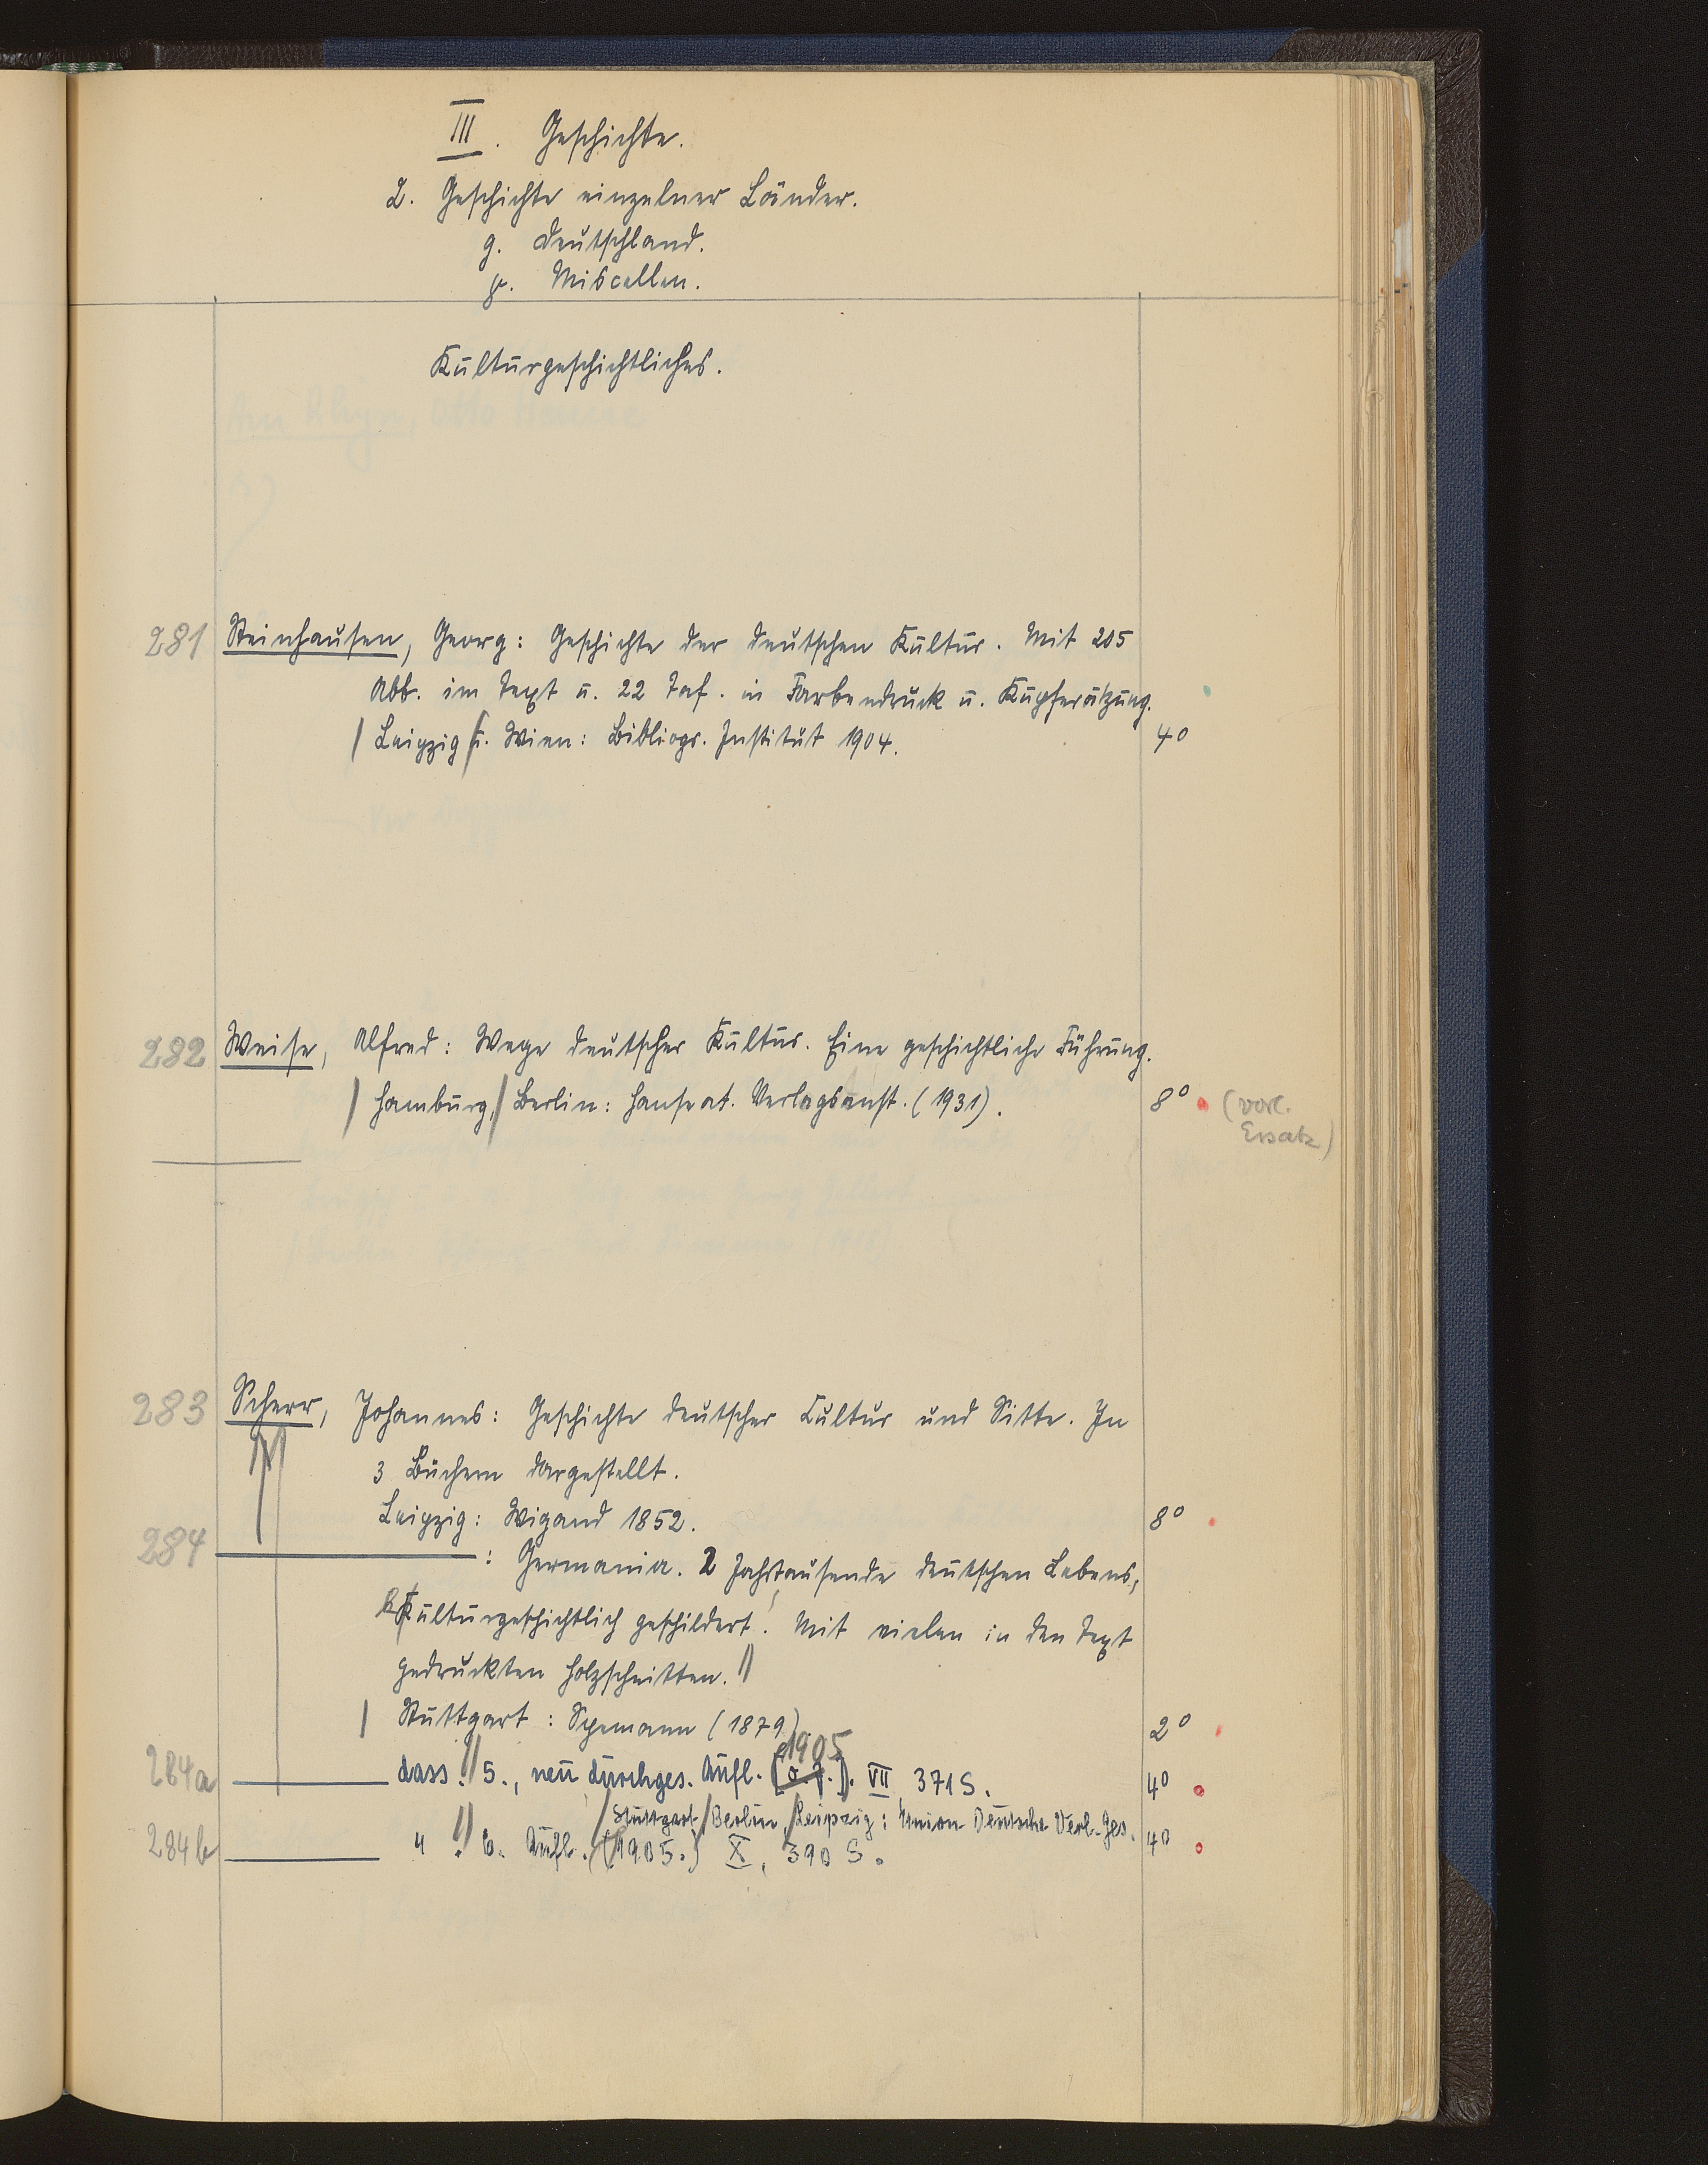 III. Geschichte.
2. Geschichte einzelner Länder.
g. Deutschland.
γ. Miscellen.
Kulturgeschichtliches.
281 Steinhausen, Georg: Geschichte der deutschen Kultur. Mit 205
Abb. im Text u. 22 Taf. in Farbendruck u. Kupferätzung.
/ Leipzig / u. Wien: Bibliogr. Institut 1904. 4°
282 Weise, Alfred: Wege deutscher Kultur. Eine geschichtliche Führung.
/ Hamburg, / Berlin: Hanseat. Verlagsanst. (1931). 8° (vorl.
Ersatz)
283 Scherr, Johannes: Geschichte deutscher Cultur und Sitte. In
3 Büchern dargestellt.
Leipzig: Wigand 1852. 8°
284 : Germania. 2 Jahrtausende deutschen Lebens,
kulturgeschichtlich geschildert. Mit vielen in den Text
gedruckten Holzschnitten. //
/ Stuttgart: Spemann (1879) 2°
1905
284a dass. // 5., neu durchges. Aufl. (o. J.). VII, 371 S. 4°
/ Stuttgart / Berlin, / Leipzig: Union Deutsche Verl.-Ges.
284b " // 6. Aufl. (1905.) X, 390 S. 4°